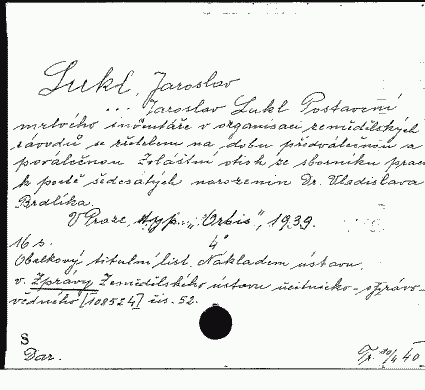 Lukl, Jaroslav
... Jaroslav Lukl Postavení
mrtvého inventáře v organisaci zemědělských
závodů se zřetelem na dobu předválečnou a
poválečnou. Zvláštní otisk ze sborníku prací
k poctě šedesátých narozenin Dr. Vladislava
Brdlíka.
V Praze, typ. „Orbis", 1939.
16 s. 4°
Obálkový titulní list. Nákladem ústavu.
v. Zprávy Zemědělského ústavu účetnicko-správo-
vědného [108524] čís. 52.
S
Dar.
40